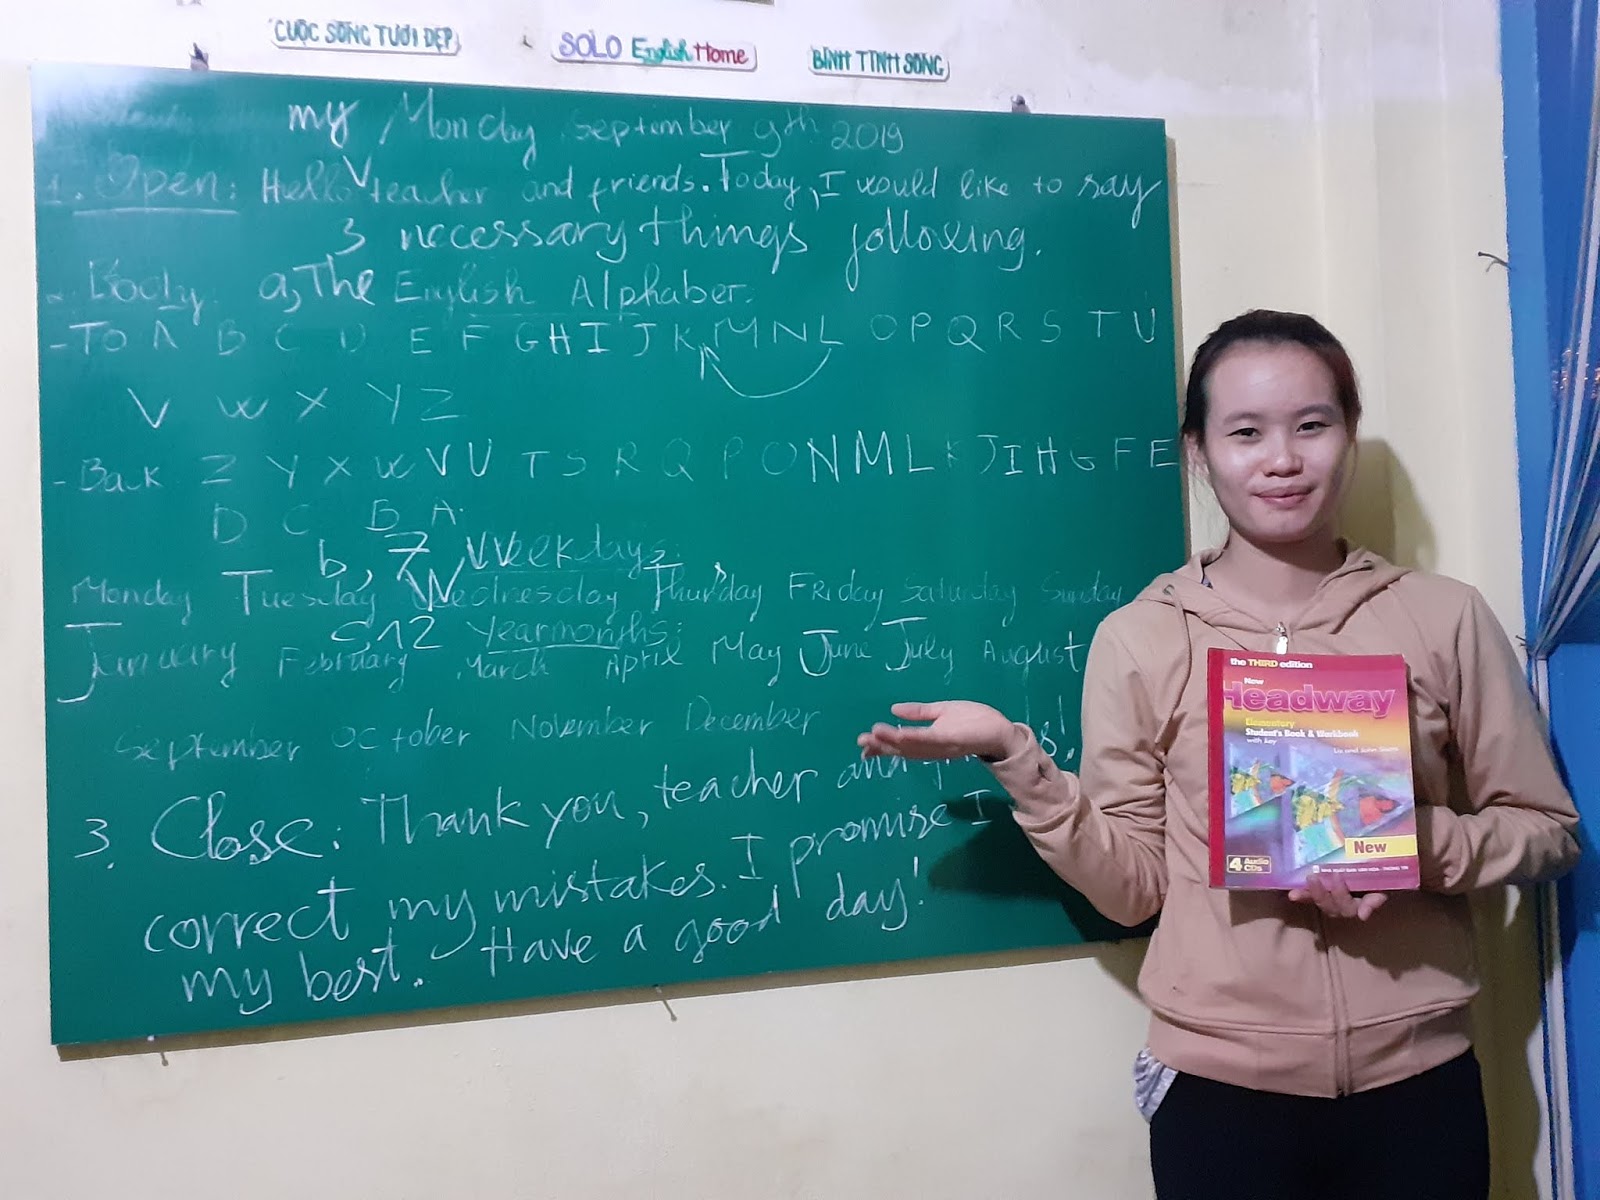 CUỘC SỐNG TƯƠI ĐẸP
SOLO English Home
BÌNH TĨNH SỐNG
my Monday September 9th 2019
1. Open: Hello V teacher and friends. Today, I would like to say
3 necessary things following.
Body: a, The English Alphabet.
- To A B C D E F G H I J K M N L O P Q R S T U
V W X Y Z
- Back Z Y X W V U T S R Q P O N M L K J I H G F E
D C B A.
b, 7 Weekdays:
Monday Tuesday Wednesday Thursday Friday Saturday Sunday
c, 12 yearmonths:
January February March April May June July August
September October November December
3. Close: Thank you, teacher and
correct my mistakes. I promise I
my best. Have a good day!
the THIRD edition
New
Headway
Elementary
Student's Book & Workbook
with key
Liz and John Soars
New
4 Audio CDs